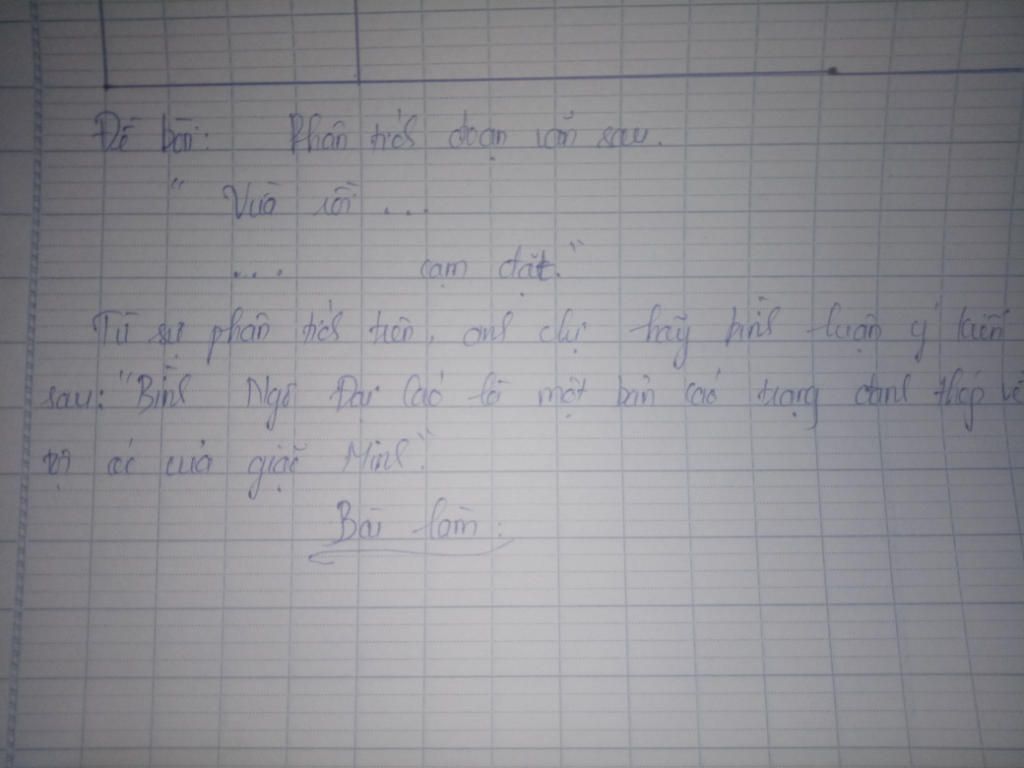 Đề bài: Phân tích đoạn văn sau.
" Vừa rồi ...
... cạm đặt."
Từ sự phân tích trên, anh chị hãy bình luận ý kiến
sau: "Bình Ngô Đại Cáo là một bản cáo trạng đanh thép về
tội ác của giặc Minh."
Bài làm: